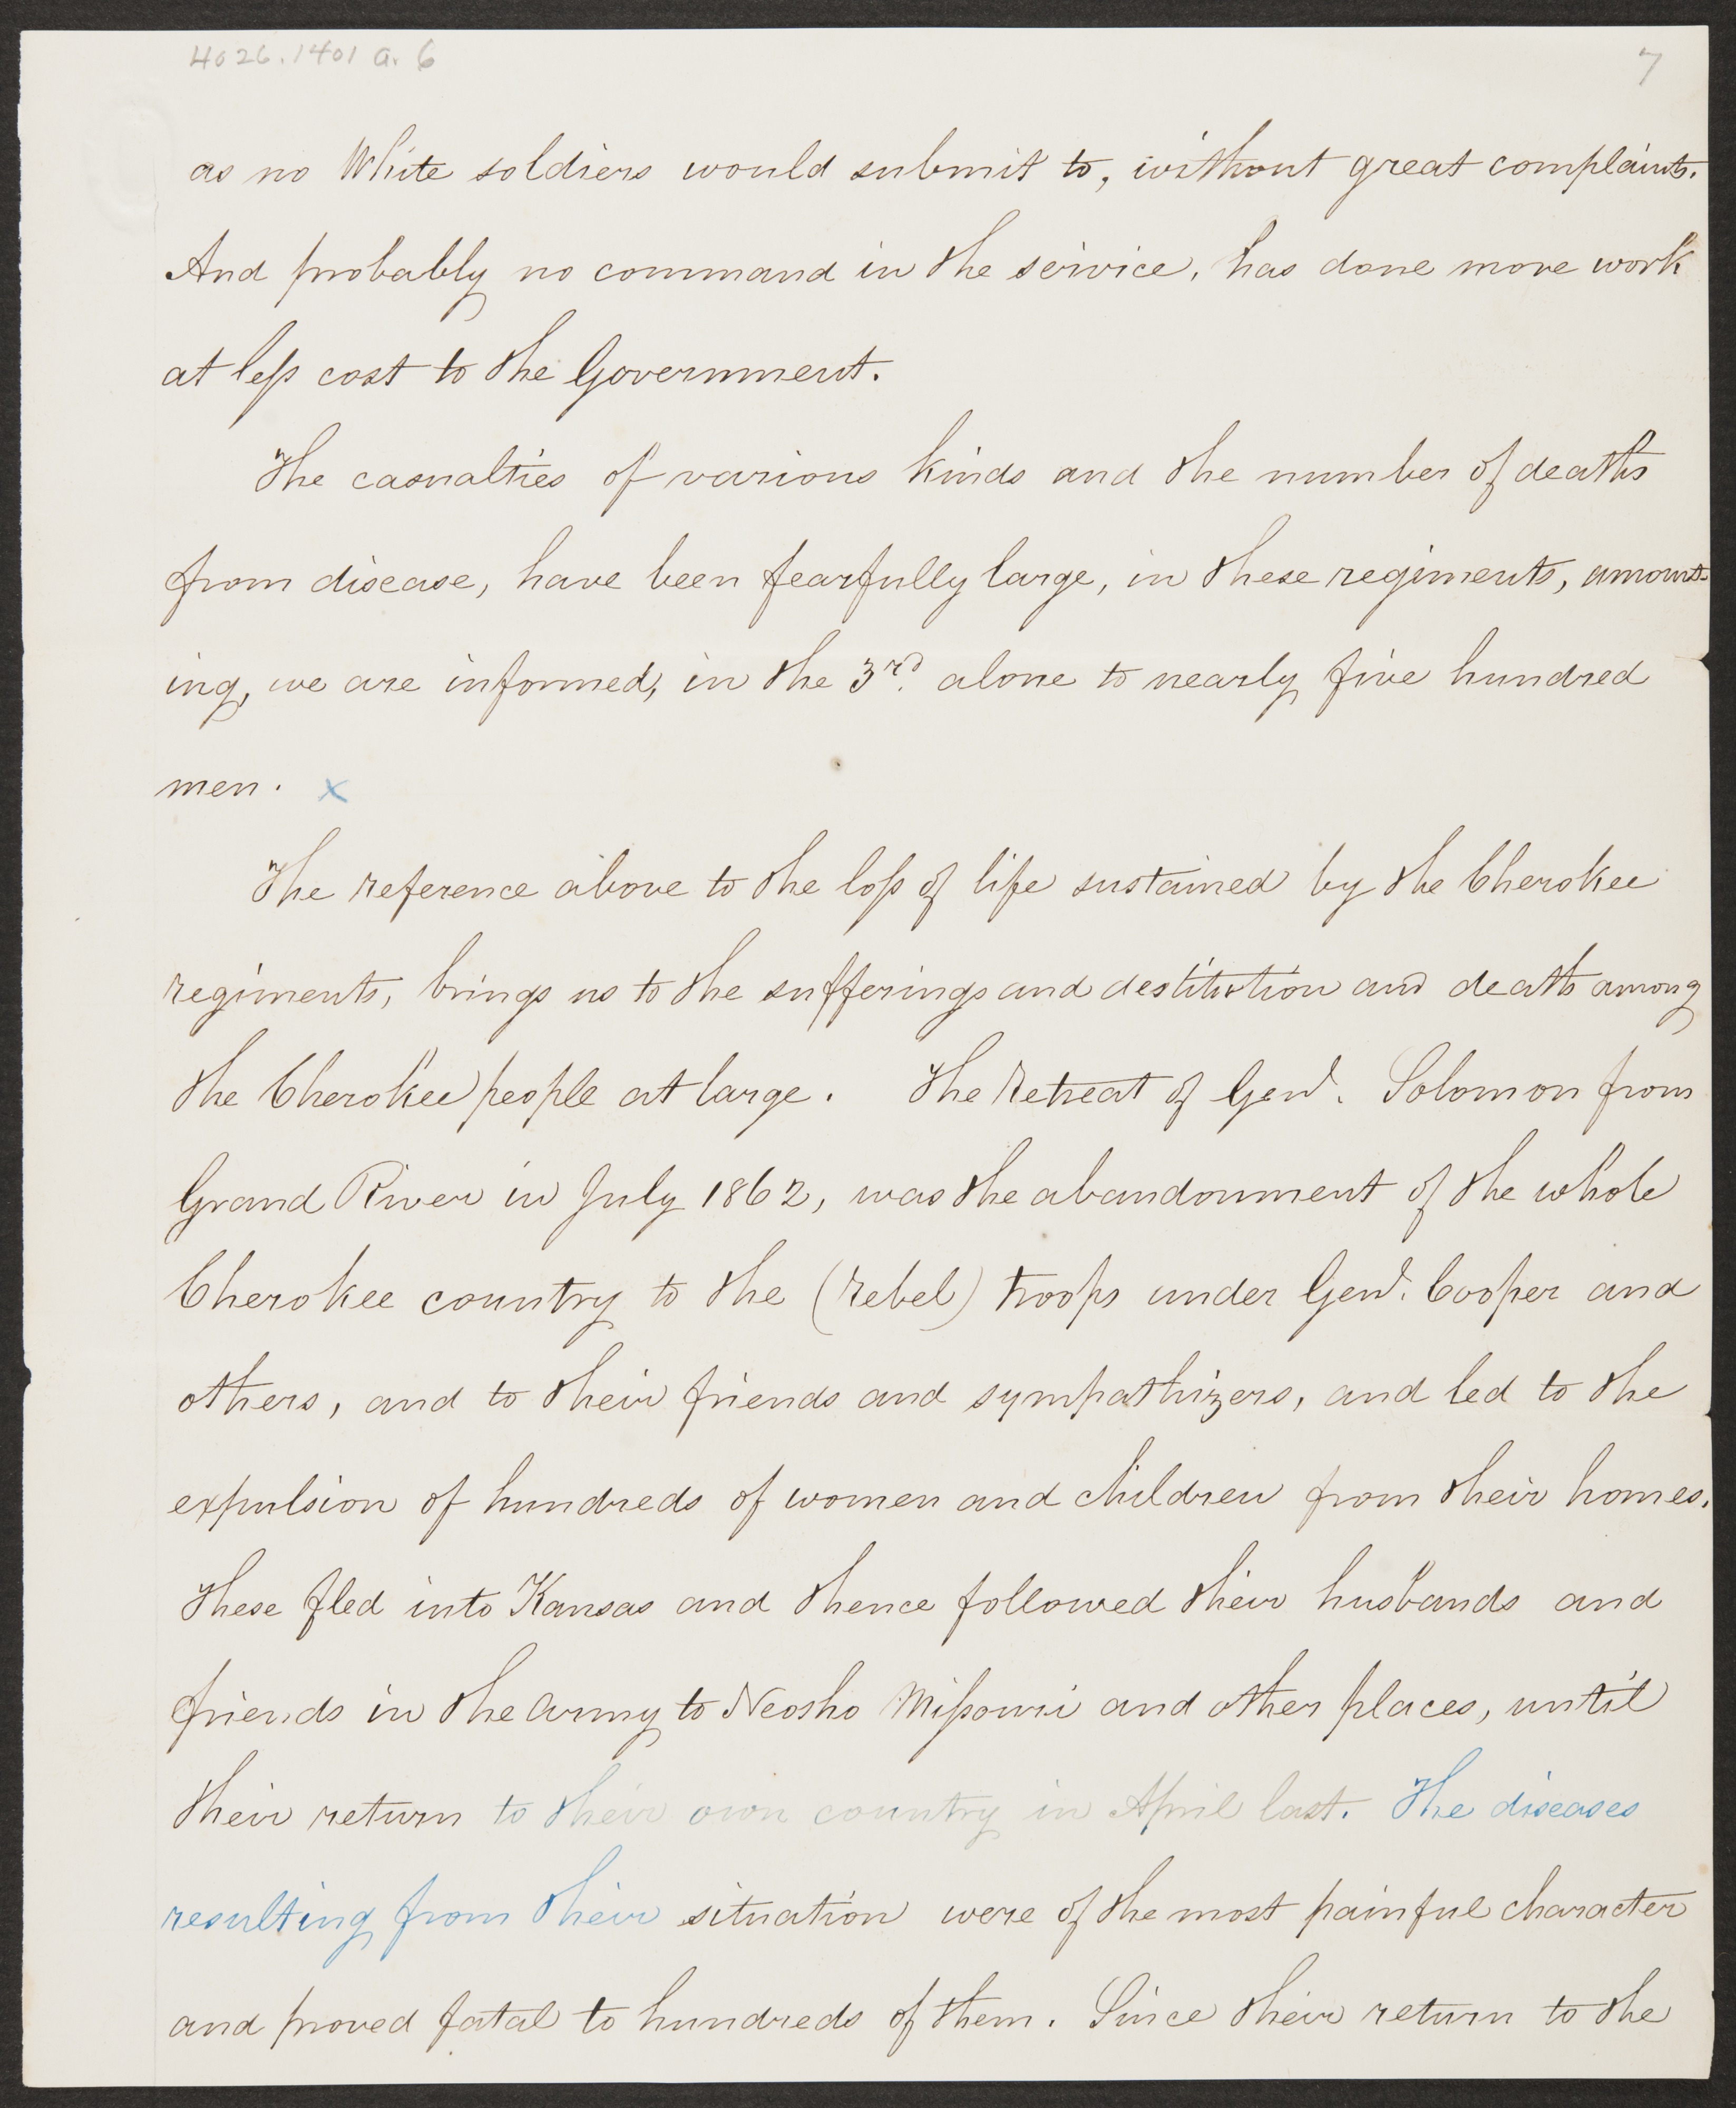 4026.1401 a. 6
7
as no White soldiers would submit to, without great complaints.
And probably no command in the service, has done more work
at less cost to the Government.
The casualties of various kinds and the number of deaths
from disease, have been fearfully large, in these regiments, amount-
ing, we are informed, in the 3rd. alone to nearly five hundred
men. x
The reference above to the loss of life sustained by the Cherokee
regiments, brings us to the sufferings and destitution and death among
the Cherokee people at large. The Retreat of Genl. Solomon from
Grand River in July 1862, was the abandonment of the whole
Cherokee country to the (rebel) troops under Genl. Cooper and
others, and to their friends and sympathizers, and led to the
expulsion of hundreds of women and children from their homes.
These fled into Kansas and thence followed their husbands and
friends in the army to Neosho Missouri and other places, until
their return to their own country in April last. The diseases
resulting from their situation were of the most painful character
and proved fatal to hundreds of them. Since their return to the